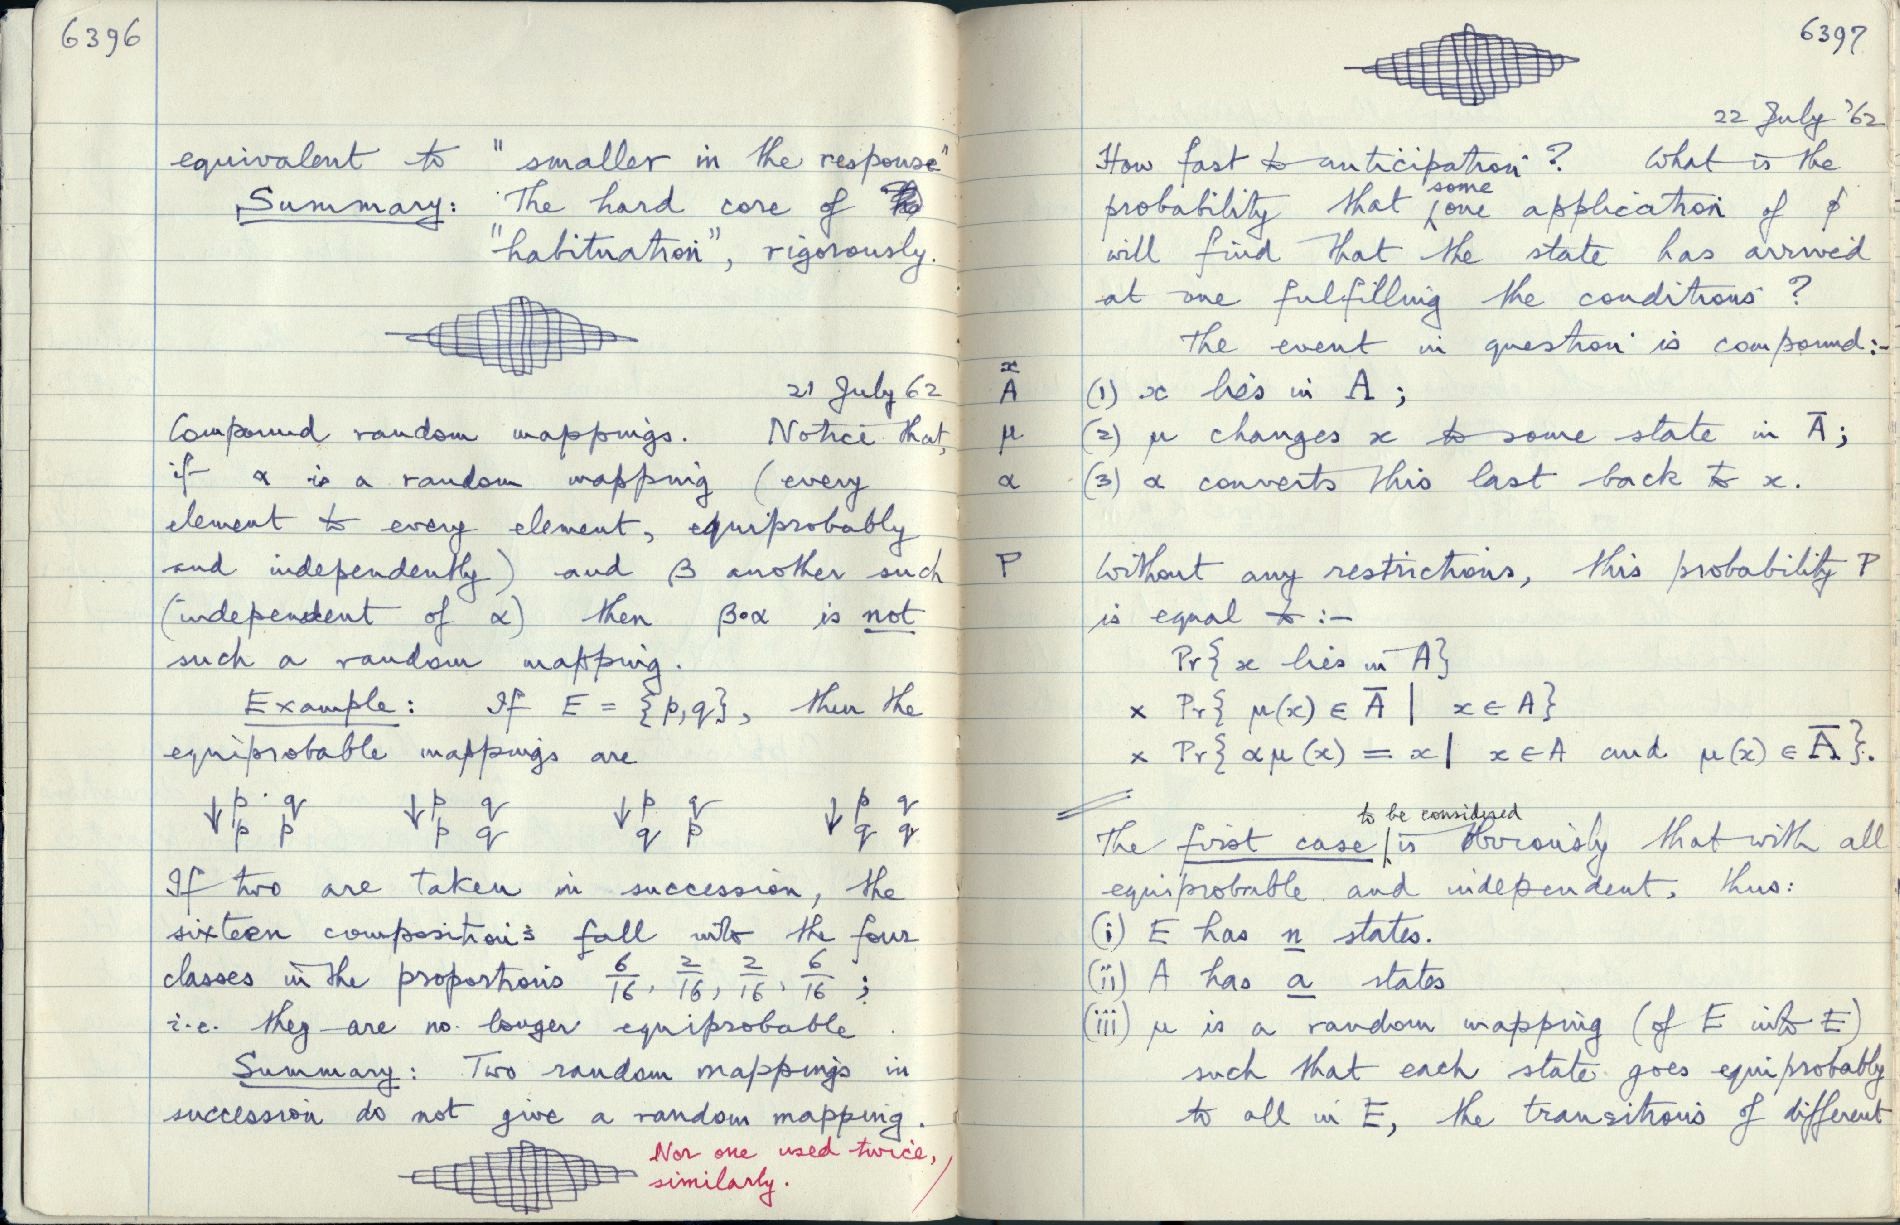 6396
equivalent to "smaller in the response"
Summary: The hard core of
"habituation", rigorously.
21 July 62
Compound random mappings. Notice that,
if α is a random mapping (every
element to every element, equiprobably
and independently) and β another such
(independent of α) then β•α is not
such a random mapping.
Example: If E = {p,q}, then the
equiprobable mappings are
↓ p q ↓ p q ↓ p q ↓ p q
p p p q q p q q
If two are taken in succession, the
sixteen compositions fall into the four
classes in the proportions 6/16, 2/16, 2/16, 6/16 ;
i.e. they are no longer equiprobable.
Summary: Two random mappings in
succession do not give a random mapping.
Nor one used twice,
similarly.
6397
22 July '62
How fast to anticipation? What is the
some
probability that one application of ϕ
will find that the state has arrived
at one fulfilling the conditions?
The event in question is compound:-
x
A (1) x lies in A;
μ (2) μ changes x to some state in Ā;
α (3) α converts this last back to x.
P Without any restrictions, this probability P
is equal to :-
Pr{x lies in A}
× Pr{ μ(x) ∈ Ā | x ∈ A}
× Pr{ αμ(x) = x | x ∈ A and μ(x) ∈ Ā}.
to be considered
The first case is obviously that with all
equiprobable and independent, thus:
(i) E has n states.
(ii) A has a states
(iii) μ is a random mapping (of E into E)
such that each state goes equiprobably
to all in E, the transitions of different